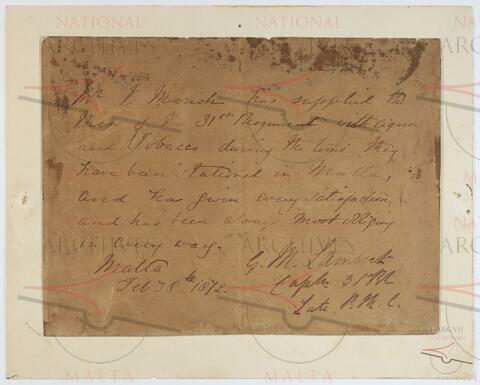 Mr J. Marich has supplied the
Men of 31st Regiment with cigars
and Tobacco during the time they
have been stationed in Malta,
and has given every satisfaction,
and has been always most obliging
in every way.
Malta
Feby 8th 1872.
G. M. Lambert
Captn 31st Rt
Late P. M. C.
NATIONAL
ARCHIVES
MALTA